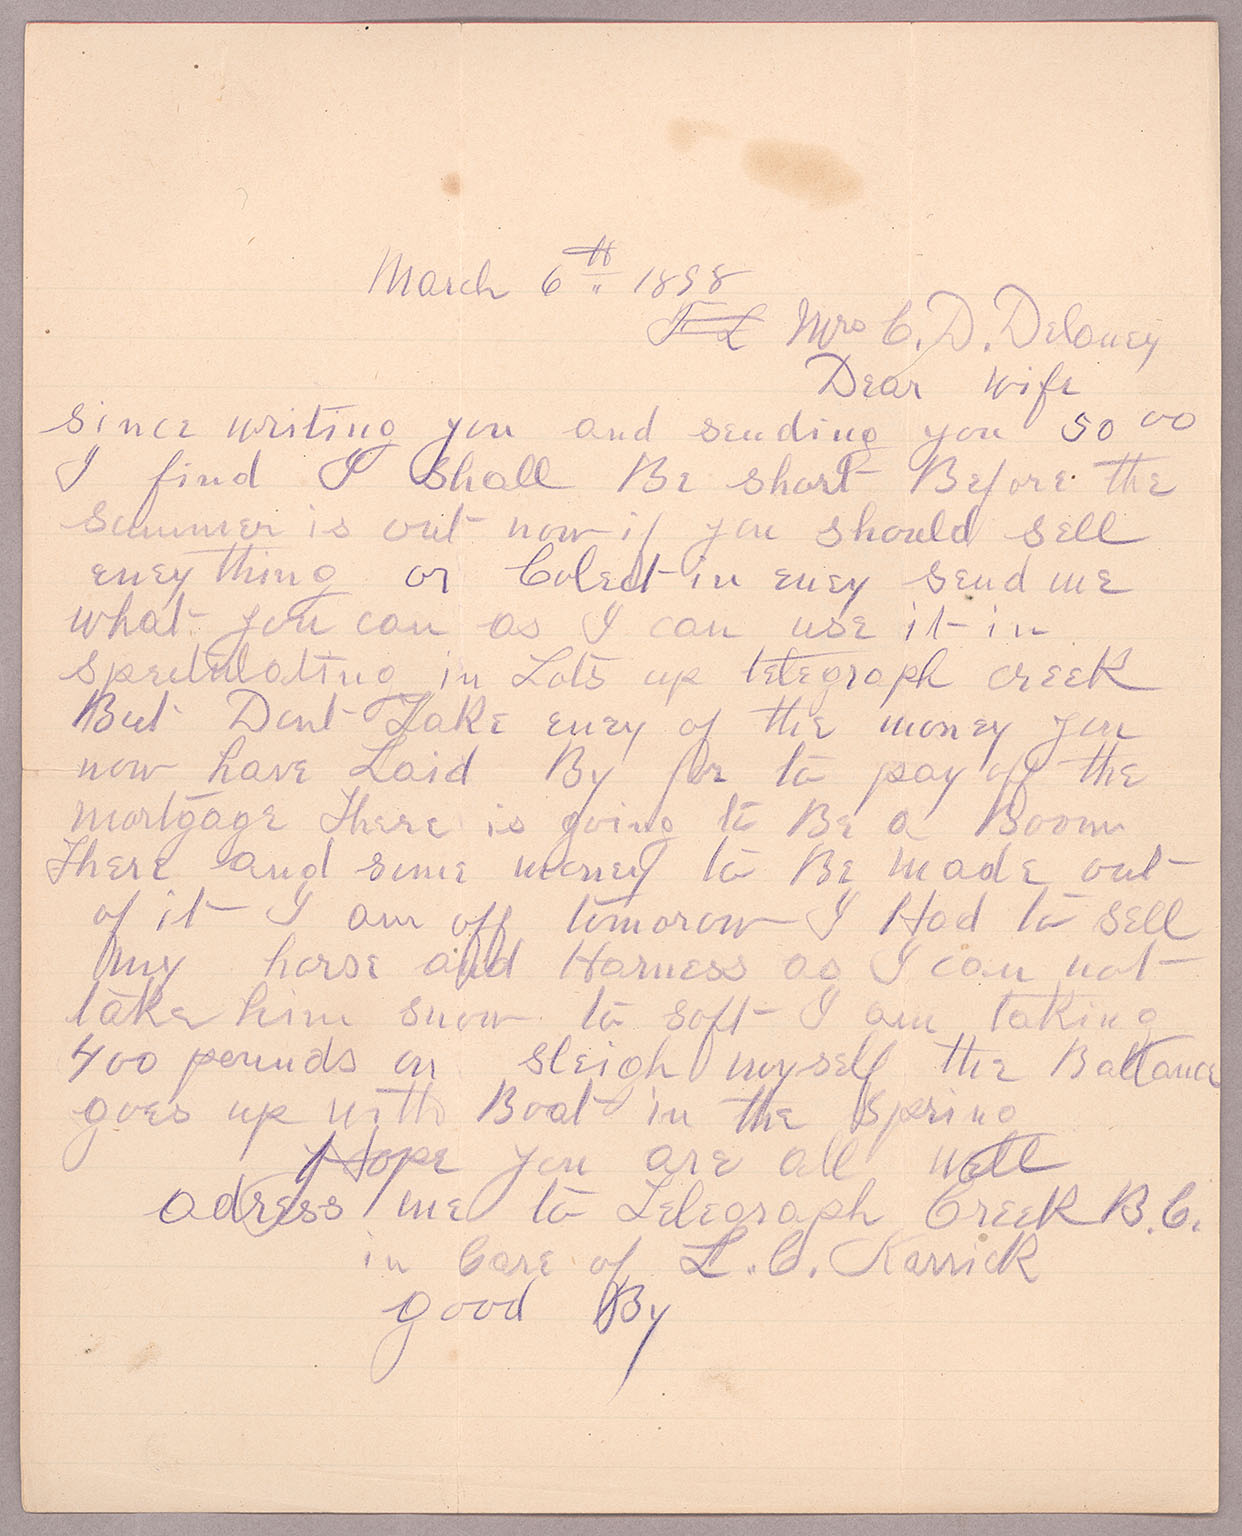 March 6th 1898
Mrs C. D. Delaney
Dear wife
since writing you and sending you 50 00
I find I shall Be short Before the
summer is out now if you should sell
eney thing or Colect in eney send me
what you can as I can use it in
speculating in Lots up telegraph creek
But Dont Take eney of the money you
now have Laid By for to pay of the
mortgage There is going to Be a Boom
There and some money to Be made out
of it I am off tomorow I Had to sell
my horse and Harness as I can not
take him snow to soft I am taking
400 pounds on sleigh myself the Ballance
goes up with Boat in the spring
Hope you are all well
adress me to Telegraph Creek B.C.
in Care of L. C. Karrick
good By